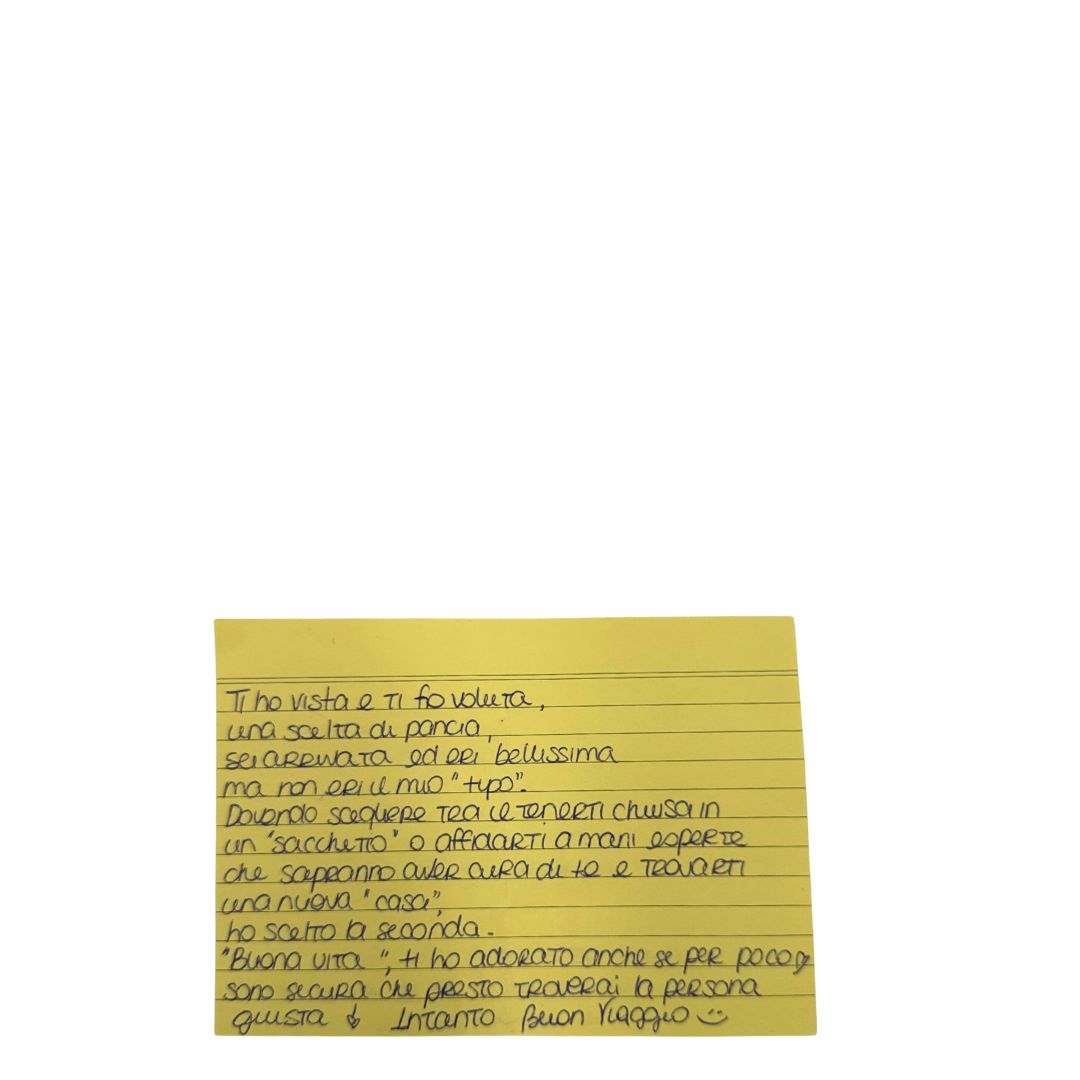 Ti ho vista e ti ho voluta,
una scelta di pancia,
sei arrivata ed eri bellissima
ma non eri il mio "tipo".
Dovendo scegliere tra il tenerti chiusa in
un "sacchetto" o affidarti a mani esperte
che sapranno aver cura di te e trovarti
una nuova "casa",
ho scelto la seconda.
"Buona vita", ti ho adorato anche se per poco
sono sicura che presto troverai la persona
giusta Intanto Buon Viaggio